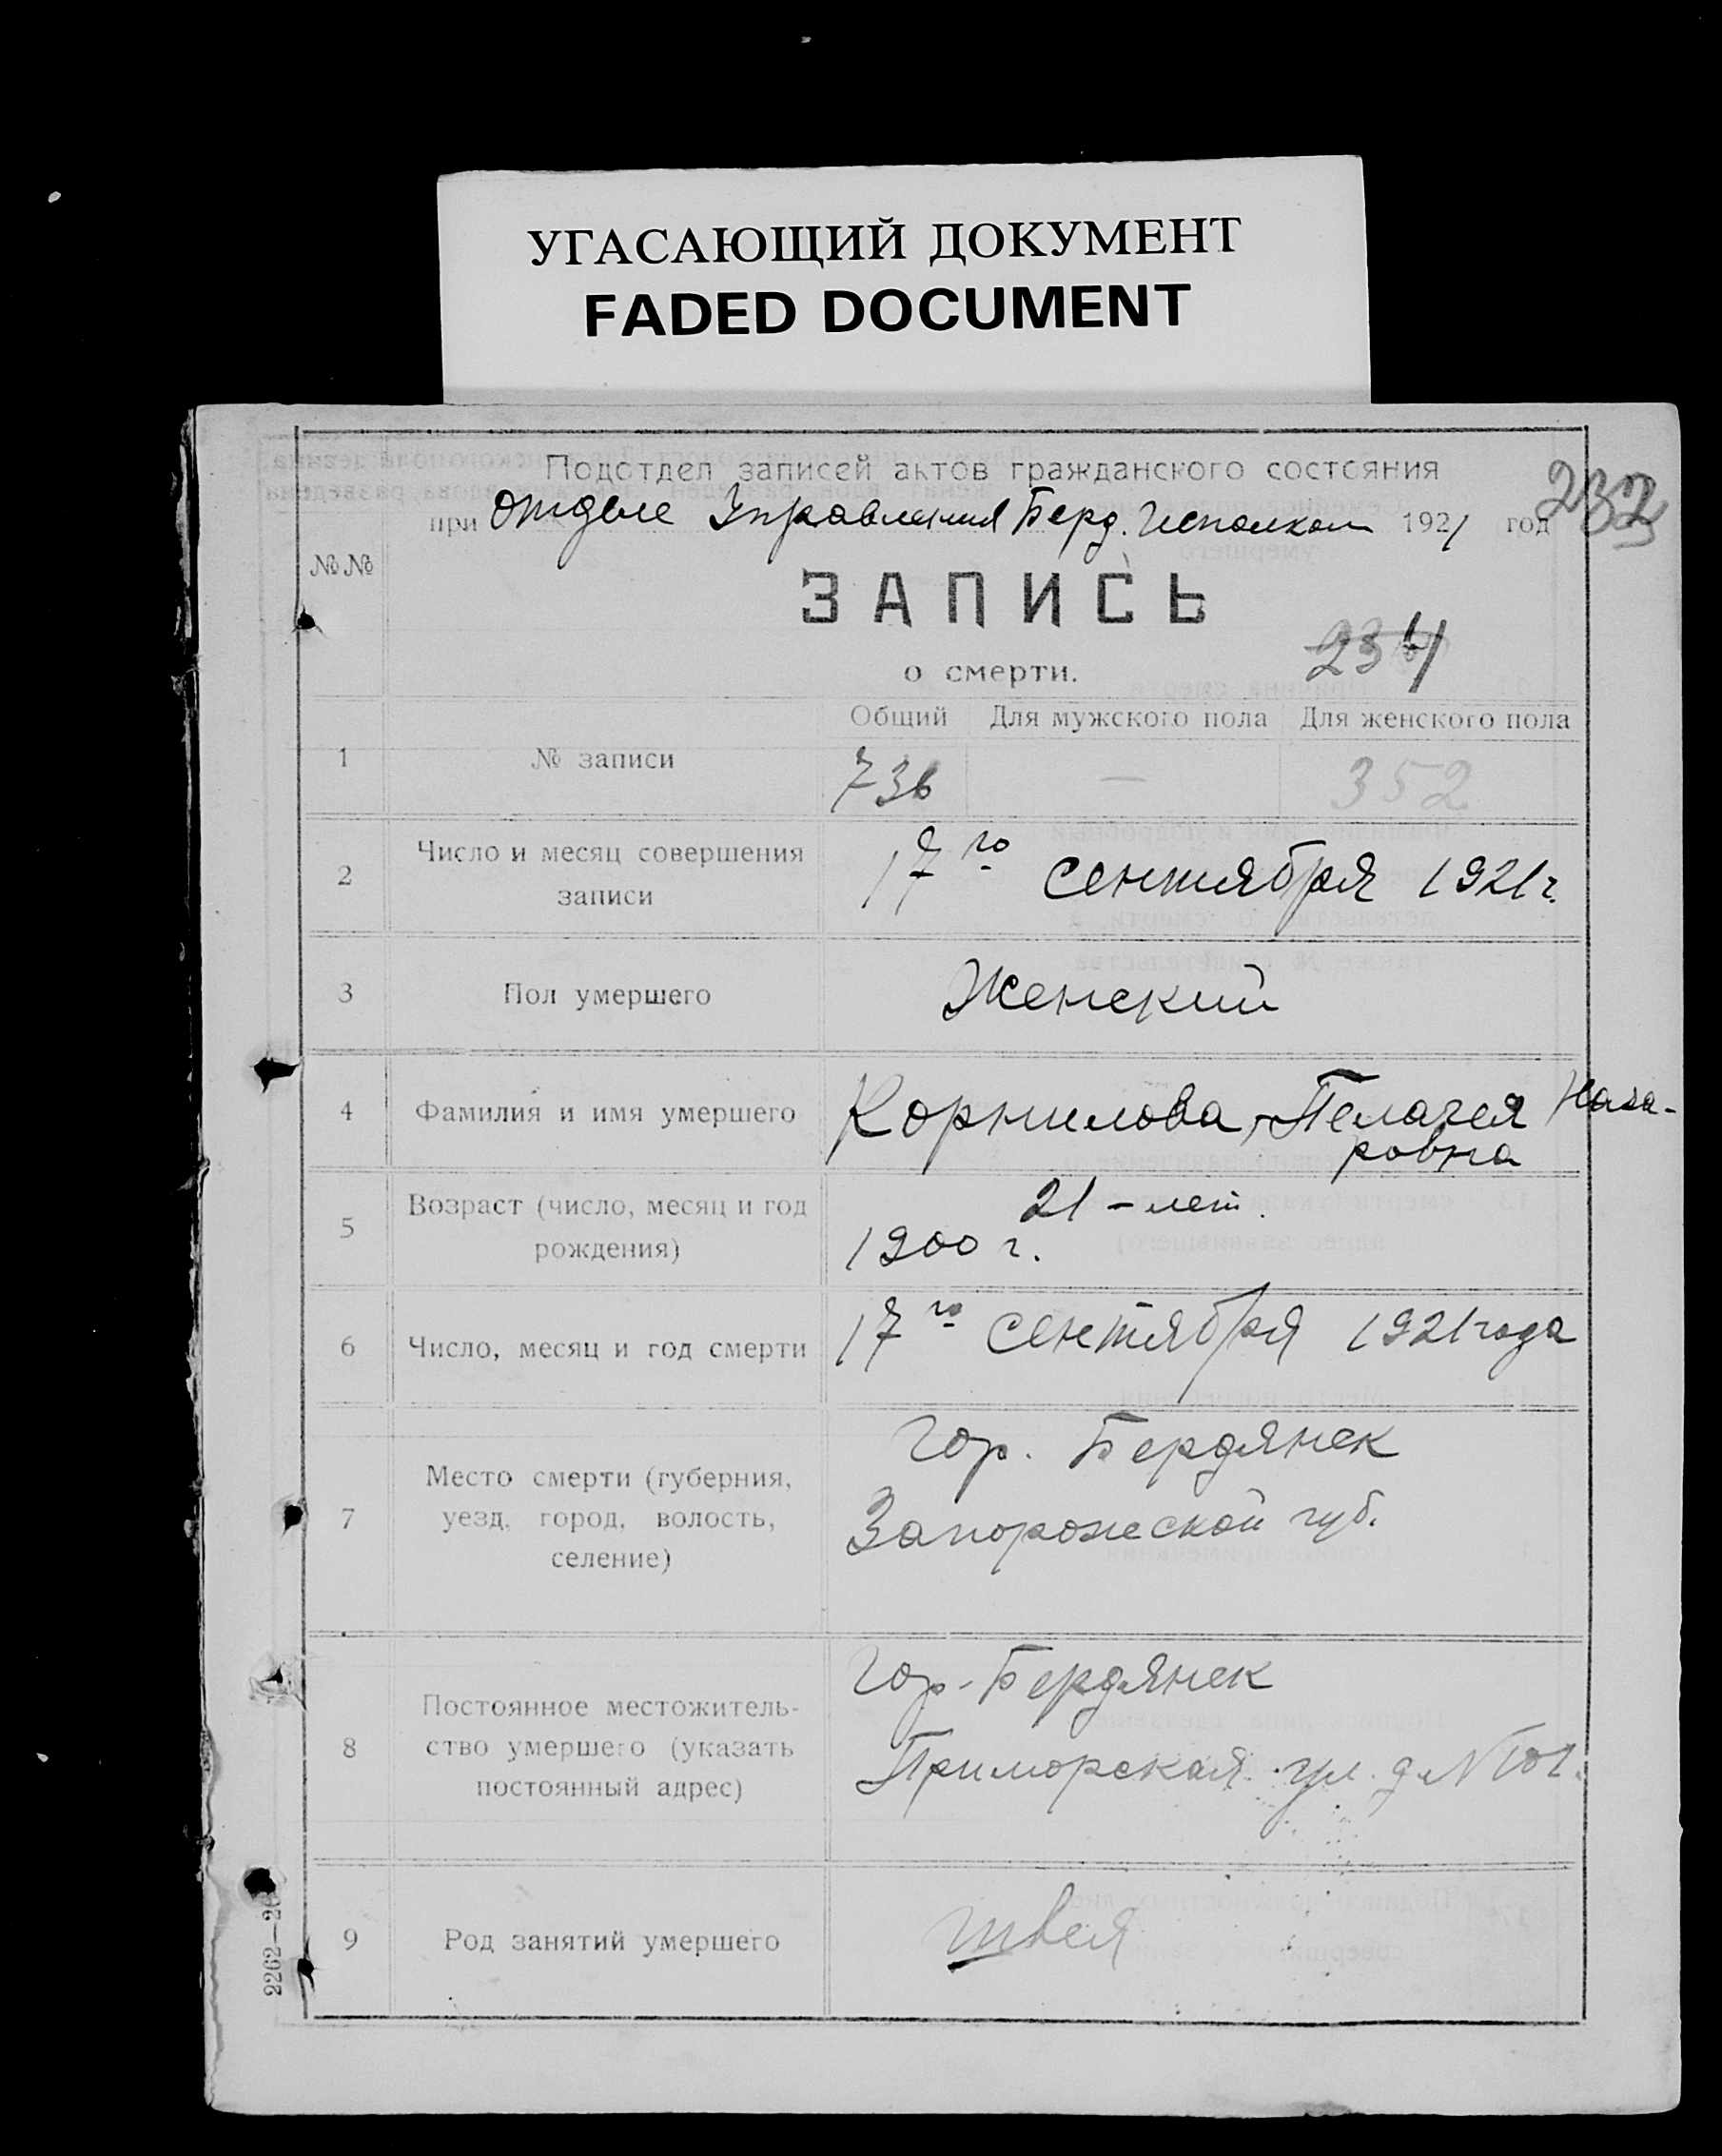 УГАСАЮЩИЙ ДОКУМЕНТ
FADED DOCUMENT
Подотдел записей актов гражданского состояния
232
при Отделе Управления Берд. Исполком 1921 год
№№
ЗАПИСЬ
234
о смерти.
Общий Для мужского пола Для женского пола
1 № записи 736 — 352
2 Число и месяц совершения
записи
17го сентября 1921 г.
3 Пол умершего Женский
4 Фамилия и имя умершего Корнилова, Пелагея Наза-
ровна
5 Возраст (число, месяц и год
рождения)
21 – лет.
1900 г.
6 Число, месяц и год смерти 17го сентября 1921 года
7 Место смерти (губерния,
уезд, город, волость,
селение)
Гор. Бердянск
Запорожской губ.
8 Постоянное местожитель-
ство умершего (указать
постоянный адрес)
Гор. Бердянск
Приморская ул. д. №
9 Род занятий умершего швея